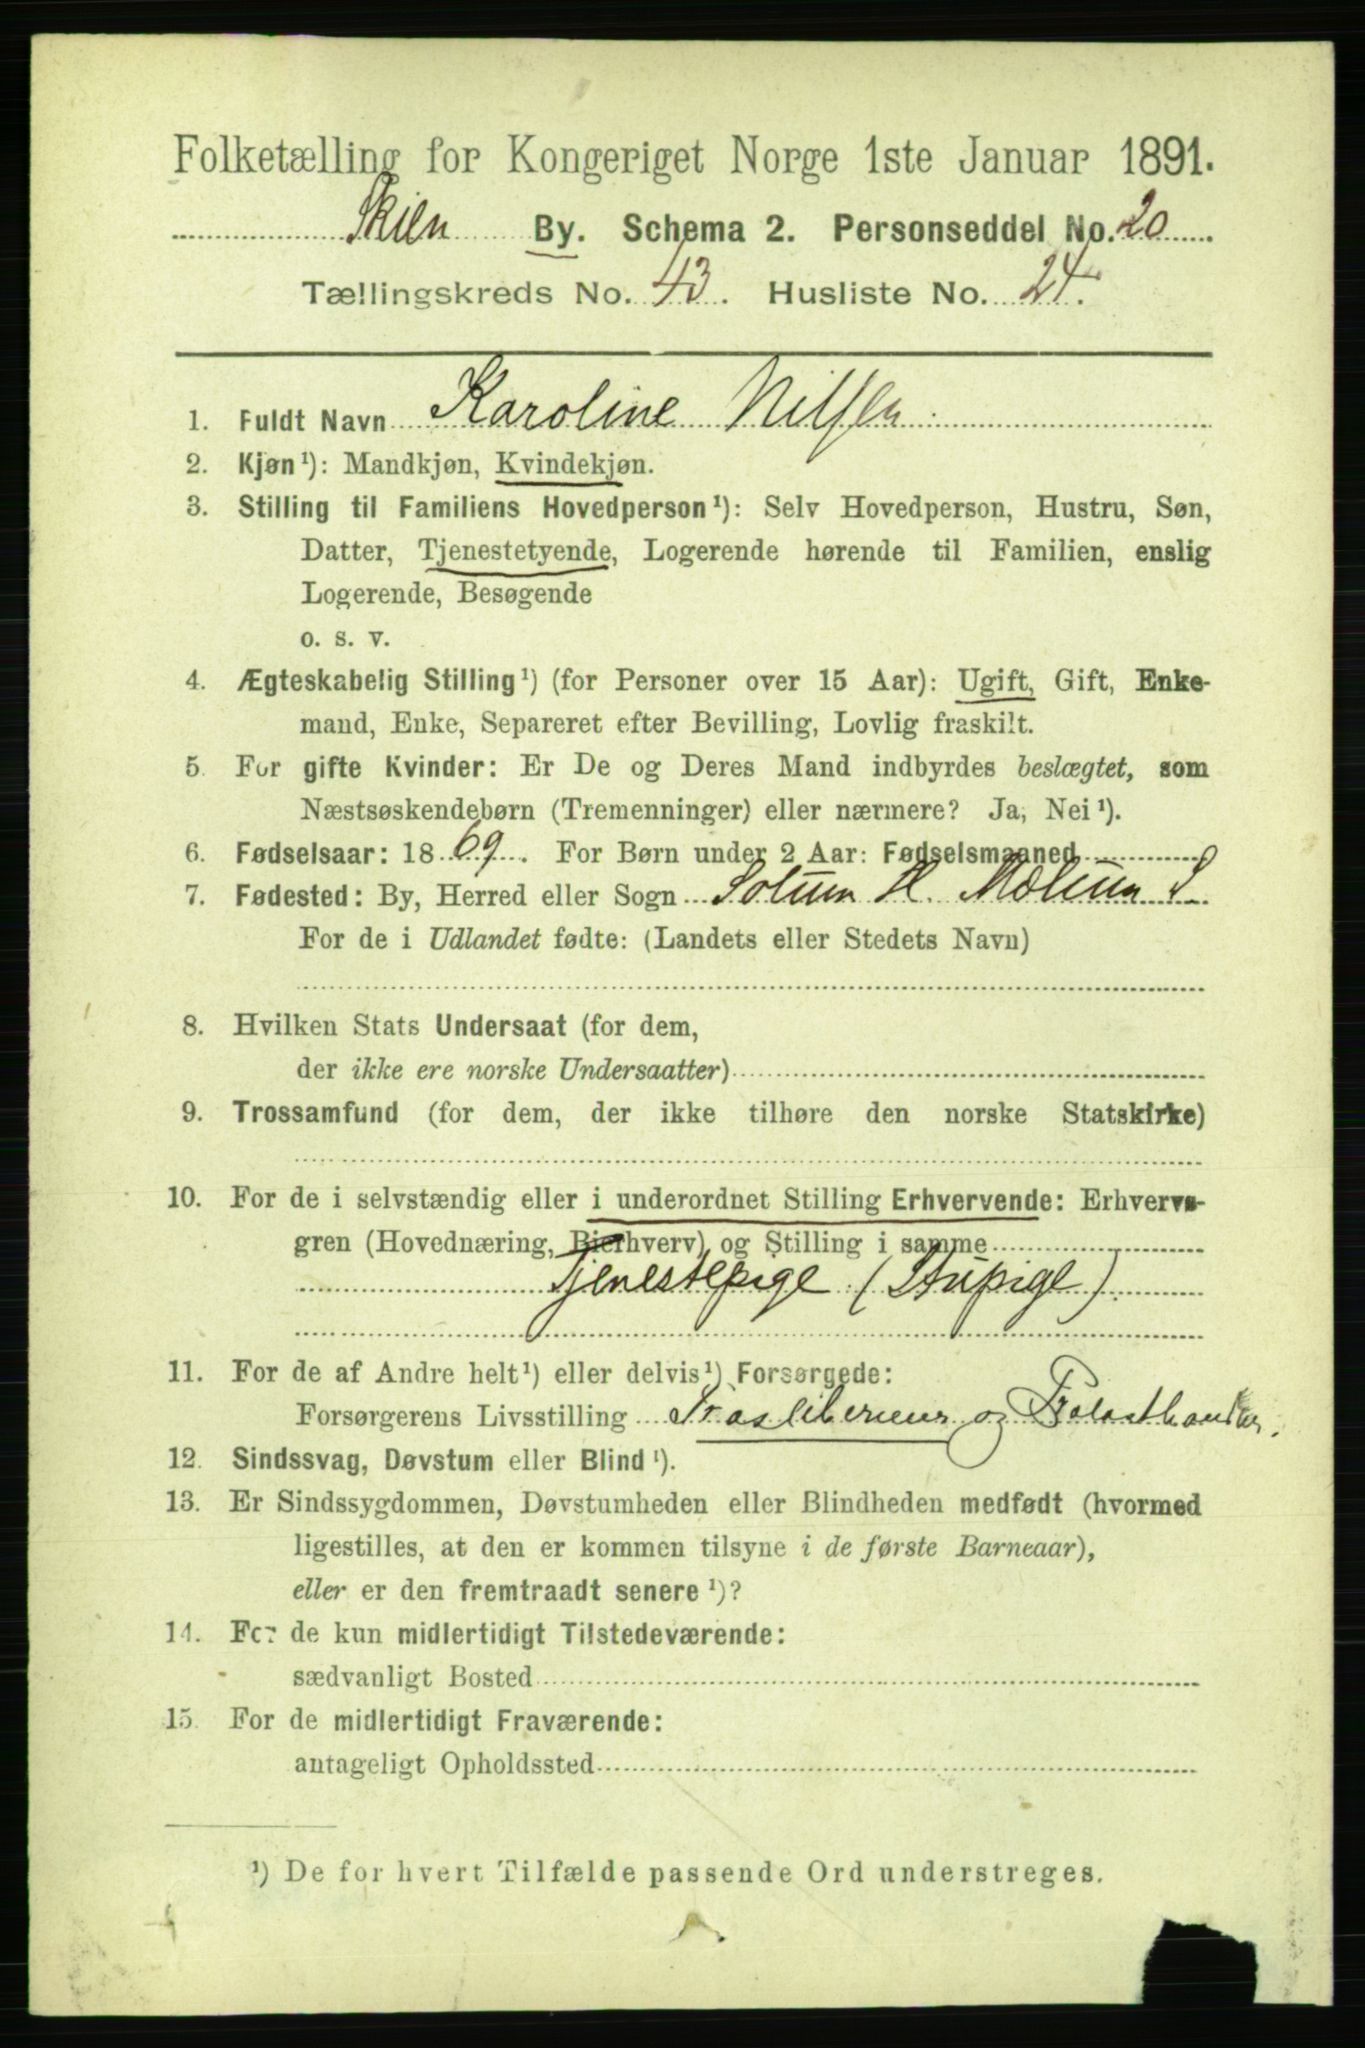 Folketælling for Kongeriget Norge 1ste Januar 1891.
Skien By. Schema 2. Personseddel No. 20
Tællingskreds No. 43. Husliste No. 24.
1. Fuldt Navn Karoline Nilsen.
2. Kjøn¹): Mandkjøn, Kvindekjøn.
3. Stilling til Familiens Hovedperson¹): Selv Hovedperson, Hustru, Søn,
Datter, Tjenestetyende, Logerende hørende til Familien, enslig
Logerende, Besøgende
o. s. v.
4. Ægteskabelig Stilling¹) (for Personer over 15 Aar): Ugift, Gift, Enke-
mand, Enke, Separeret efter Bevilling, Lovlig fraskilt.
5. For gifte Kvinder: Er De og Deres Mand indbyrdes beslægtet, som
Næstsøskendebørn (Tremenninger) eller nærmere? Ja, Nei¹).
6. Fødselsaar: 1869. For Børn under 2 Aar: Fødselsmaaned
7. Fødested: By, Herred eller Sogn Solum H. Mælum S
For de i Udlandet fødte: (Landets eller Stedets Navn)
8. Hvilken Stats Undersaat (for dem,
der ikke ere norske Undersaatter)
9. Trossamfund (for dem, der ikke tilhøre den norske Statskirke)
10. For de i selvstændig eller i underordnet Stilling Erhvervende: Erhvervs-
gren (Hovednæring, Bierhverv) og Stilling i samme
Tjenestepige (Stupige).
11. For de af Andre helt¹) eller delvis¹) Forsørgede:
Forsørgerens Livsstilling og
12. Sindssvag, Døvstum eller Blind¹).
13. Er Sindssygdommen, Døvstumheden eller Blindheden medfødt (hvormed
ligestilles, at den er kommen tilsyne i de første Barneaar),
eller er den fremtraadt senere¹)?
14. For de kun midlertidigt Tilstedeværende:
sædvanligt Bosted
15. For de midlertidigt Fraværende:
antageligt Opholdssted
¹) De for hvert Tilfælde passende Ord understreges.